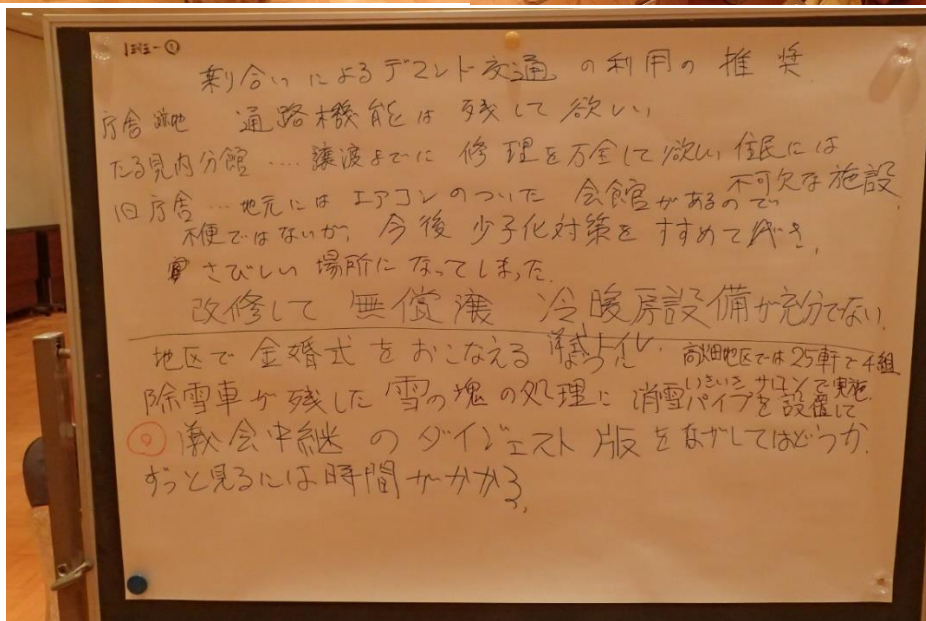 1班-①
乗り合いによるデマンド交通の利用の推奨
庁舎跡地 通路機能は残して欲しい
たる見内分館‥‥譲渡までに修理を万全して欲しい 住民には
不可欠な施設
旧庁舎‥‥地元にはエアコンのついた会館があるので
不便ではないが、今後少子化対策をすすめて
さびしい場所になってしまった。
改修して無償譲 冷暖房設備が充分でない
地区で金婚式をおこなえる 洋式トイレ
地区では25軒で4組
いきいきサロンで実施
除雪車が残した雪の塊の処理に消雪パイプを設置して
会中継のダイジェスト版をながしてはどうか
ずっと見るには時間がかかる。